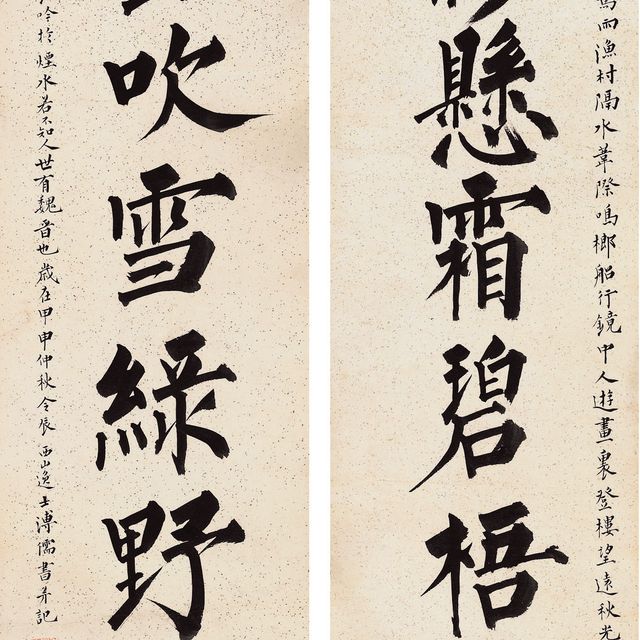 雨漁村隔水葦際鳴榔船行鏡中人遊畫裏登樓望遠秋光
懸霜碧梧
吹雪綠野
吟於煙水若不知人世有魏晉也歲在甲申仲秋令辰西山逸士溥儒書并記